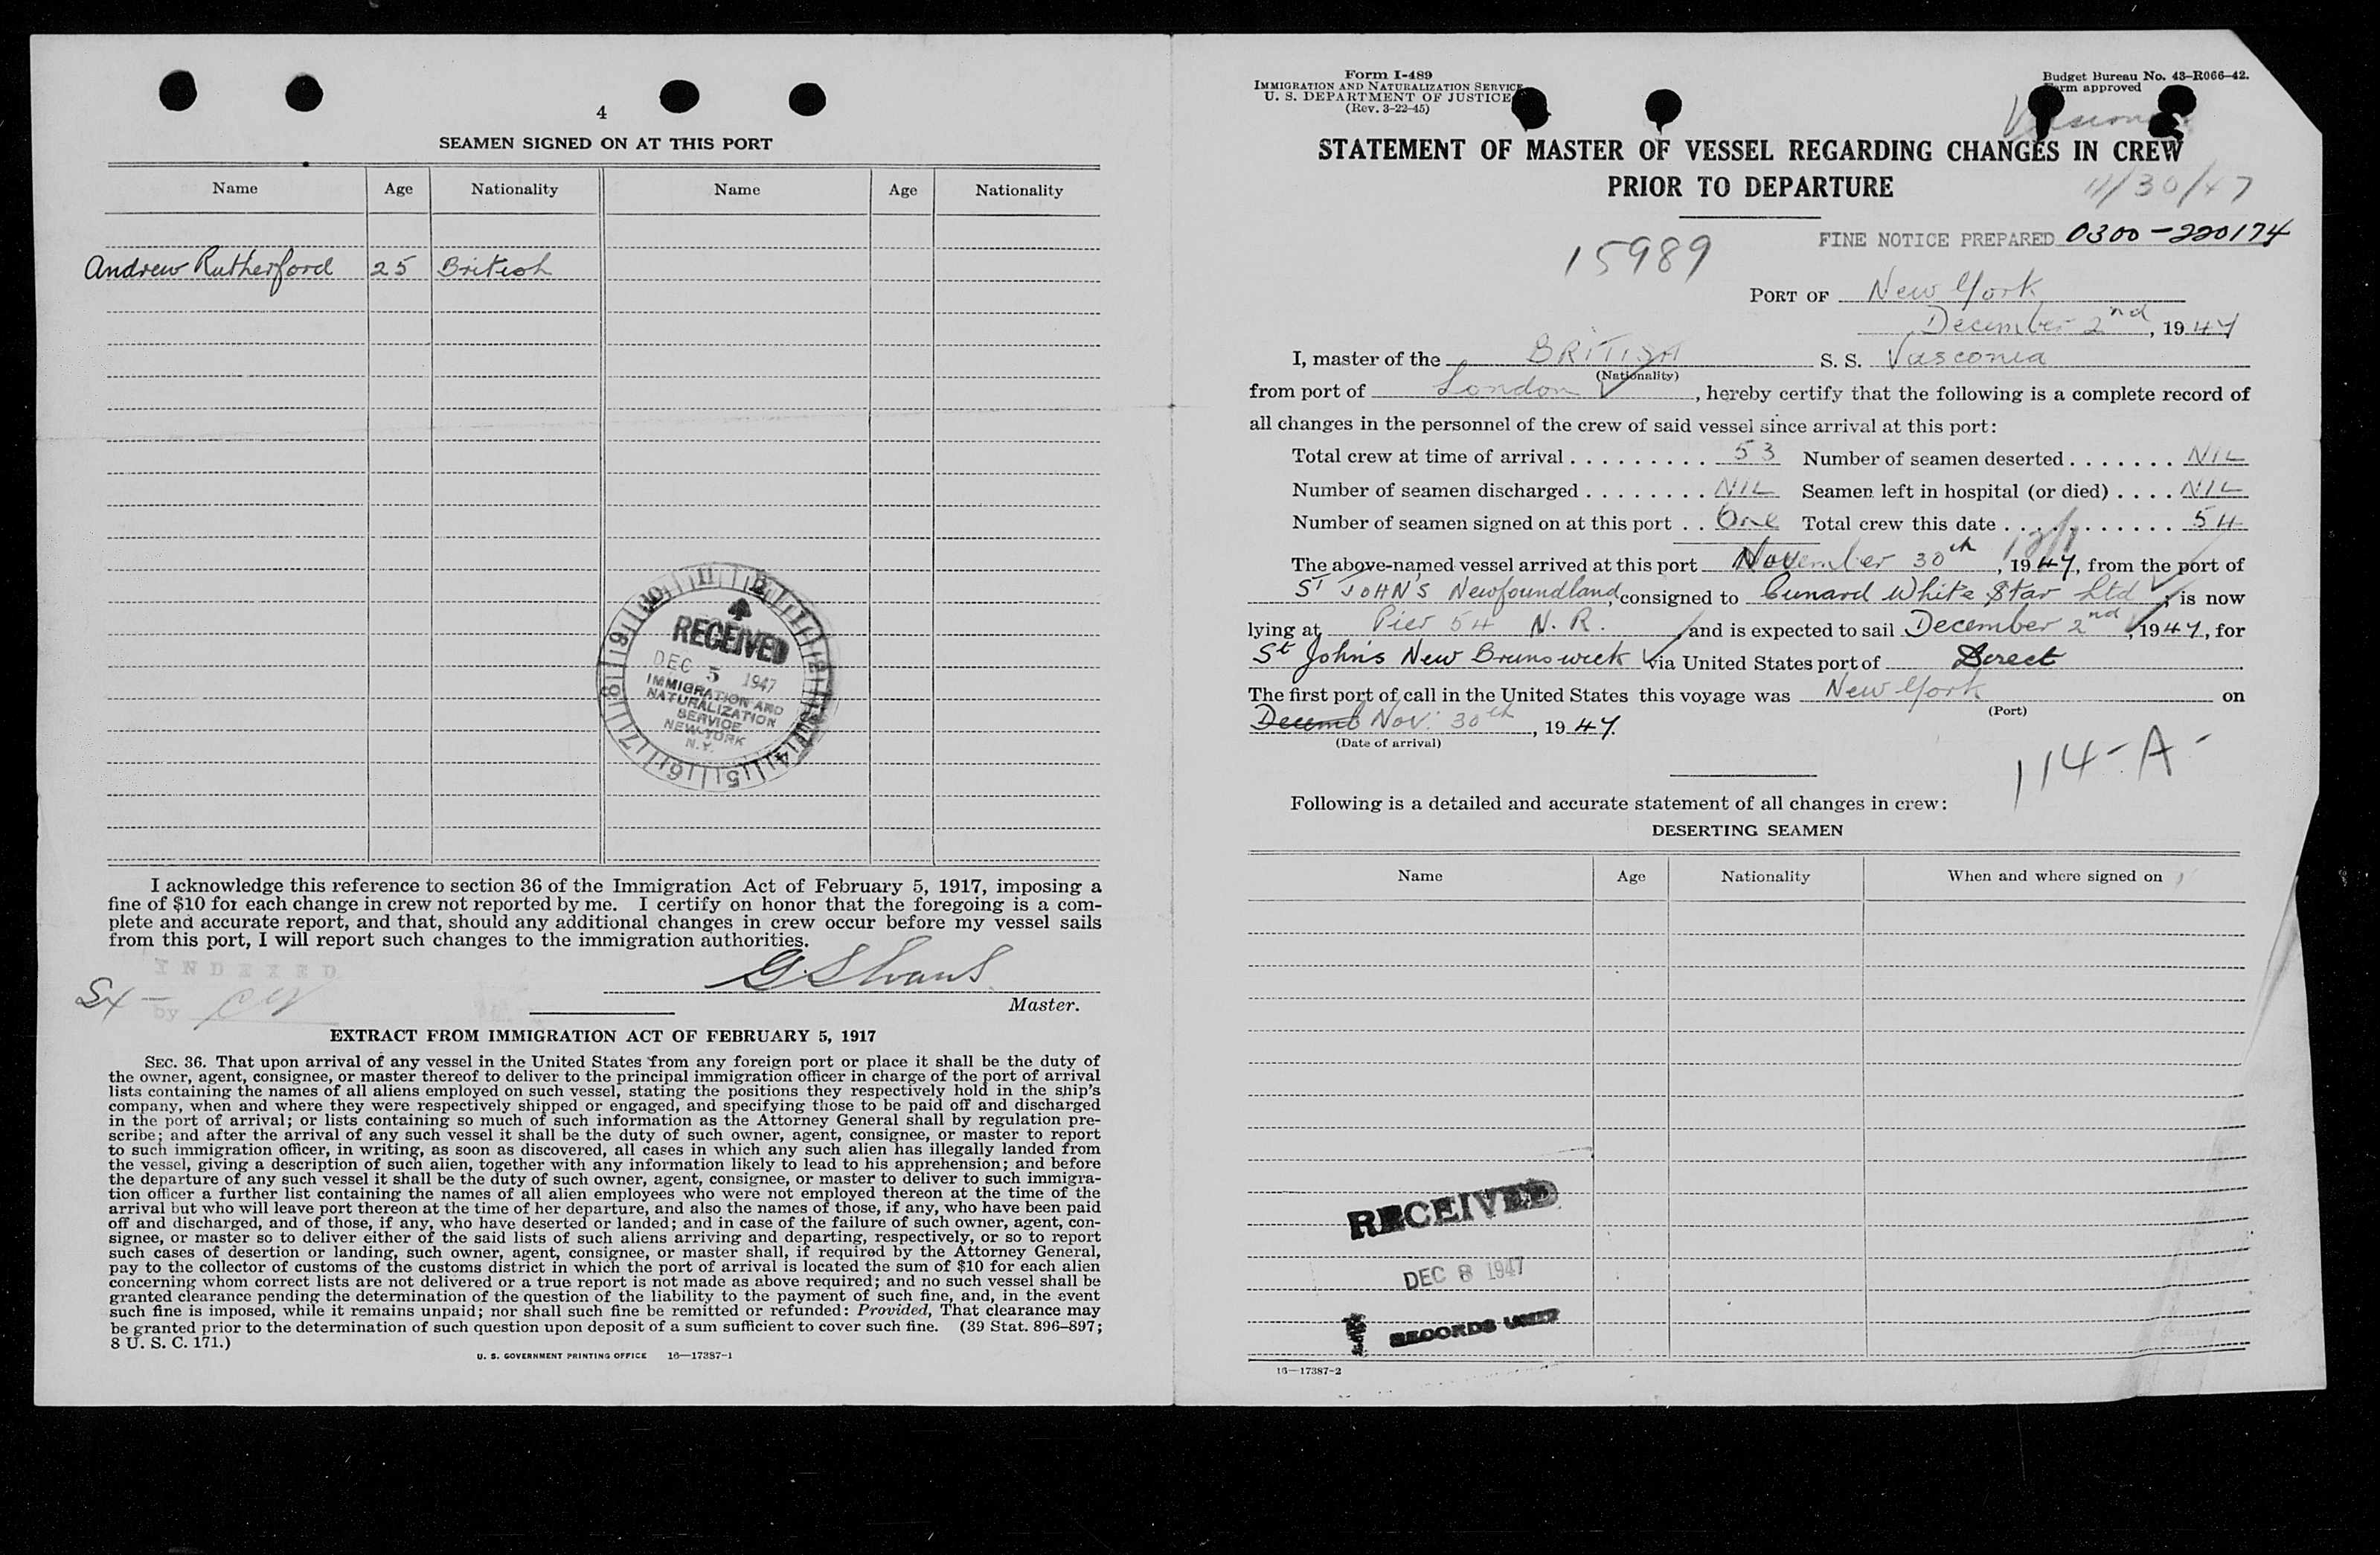 4
SEAMEN SIGNED ON AT THIS PORT
Name Age Nationality Name Age Nationality
Andrew Rutherford 25 British
RECEIVED
DEC 5 1947
IMMIGRATION AND
NATURALIZATION
SERVICE
NEW YORK
N.Y.
I acknowledge this reference to section 36 of the Immigration Act of February 5, 1917, imposing a
fine of $10 for each change in crew not reported by me. I certify on honor that the foregoing is a com-
plete and accurate report, and that, should any additional changes in crew occur before my vessel sails
from this port, I will report such changes to the immigration authorities.
INDEXED
by
Master.
EXTRACT FROM IMMIGRATION ACT OF FEBRUARY 5, 1917
SEC. 36. That upon arrival of any vessel in the United States from any foreign port or place it shall be the duty of
the owner, agent, consignee, or master thereof to deliver to the principal immigration officer in charge of the port of arrival
lists containing the names of all aliens employed on such vessel, stating the positions they respectively hold in the ship's
company, when and where they were respectively shipped or engaged, and specifying those to be paid off and discharged
in the port of arrival; or lists containing so much of such information as the Attorney General shall by regulation pre-
scribe; and after the arrival of any such vessel it shall be the duty of such owner, agent, consignee, or master to report
to such immigration officer, in writing, as soon as discovered, all cases in which any such alien has illegally landed from
the vessel, giving a description of such alien, together with any information likely to lead to his apprehension; and before
the departure of any such vessel it shall be the duty of such owner, agent, consignee, or master to deliver to such immigra-
tion officer a further list containing the names of all alien employees who were not employed thereon at the time of the
arrival but who will leave port thereon at the time of her departure, and also the names of those, if any, who have been paid
off and discharged, and of those, if any, who have deserted or landed; and in case of the failure of such owner, agent, con-
signee, or master so to deliver either of the said lists of such aliens arriving and departing, respectively, or so to report
such cases of desertion or landing, such owner, agent, consignee, or master shall, if required by the Attorney General,
pay to the collector of customs of the customs district in which the port of arrival is located the sum of $10 for each alien
concerning whom correct lists are not delivered or a true report is not made as above required; and no such vessel shall be
granted clearance pending the determination of the question of the liability to the payment of such fine, and, in the event
such fine is imposed, while it remains unpaid; nor shall such fine be remitted or refunded: Provided, That clearance may
be granted prior to the determination of such question upon deposit of a sum sufficient to cover such fine. (39 Stat. 896–897;
8 U. S. C. 171.)
U. S. GOVERNMENT PRINTING OFFICE 16—17387-1
Form I-489
IMMIGRATION AND NATURALIZATION SERVICE
U. S. DEPARTMENT OF JUSTICE
(Rev. 3-22-45)
Budget Bureau No. 43–R066–42.
Form approved
STATEMENT OF MASTER OF VESSEL REGARDING CHANGES IN CREW
PRIOR TO DEPARTURE
11/30/47
15989
FINE NOTICE PREPARED 0300-220174
PORT OF New York
December 2nd, 1947
I, master of the BRITISH S. S. Vasconia
(Nationality)
from port of London, hereby certify that the following is a complete record of
all changes in the personnel of the crew of said vessel since arrival at this port:
Total crew at time of arrival . . . . . . . . . 53 Number of seamen deserted . . . . . . . NIL
Number of seamen discharged . . . . . . . . NIL Seamen left in hospital (or died) . . . . NIL
Number of seamen signed on at this port . . One Total crew this date . . . . . . . . . . . . 54
The above-named vessel arrived at this port November 30th, 1947, from the port of
ST JOHN'S Newfoundland, consigned to Cunard White Star Ltd; is now
lying at Pier 54 N. R. and is expected to sail December 2nd, 1947, for
St John's New Brunswick via United States port of Direct
The first port of call in the United States this voyage was New York on
(Port)
Decemb Nov. 30th, 1947.
(Date of arrival)
114-A-
Following is a detailed and accurate statement of all changes in crew:
DESERTING SEAMEN
Name Age Nationality When and where signed on
RECEIVED
DEC 8 1947
RECORDS UNIT
16—17387-2